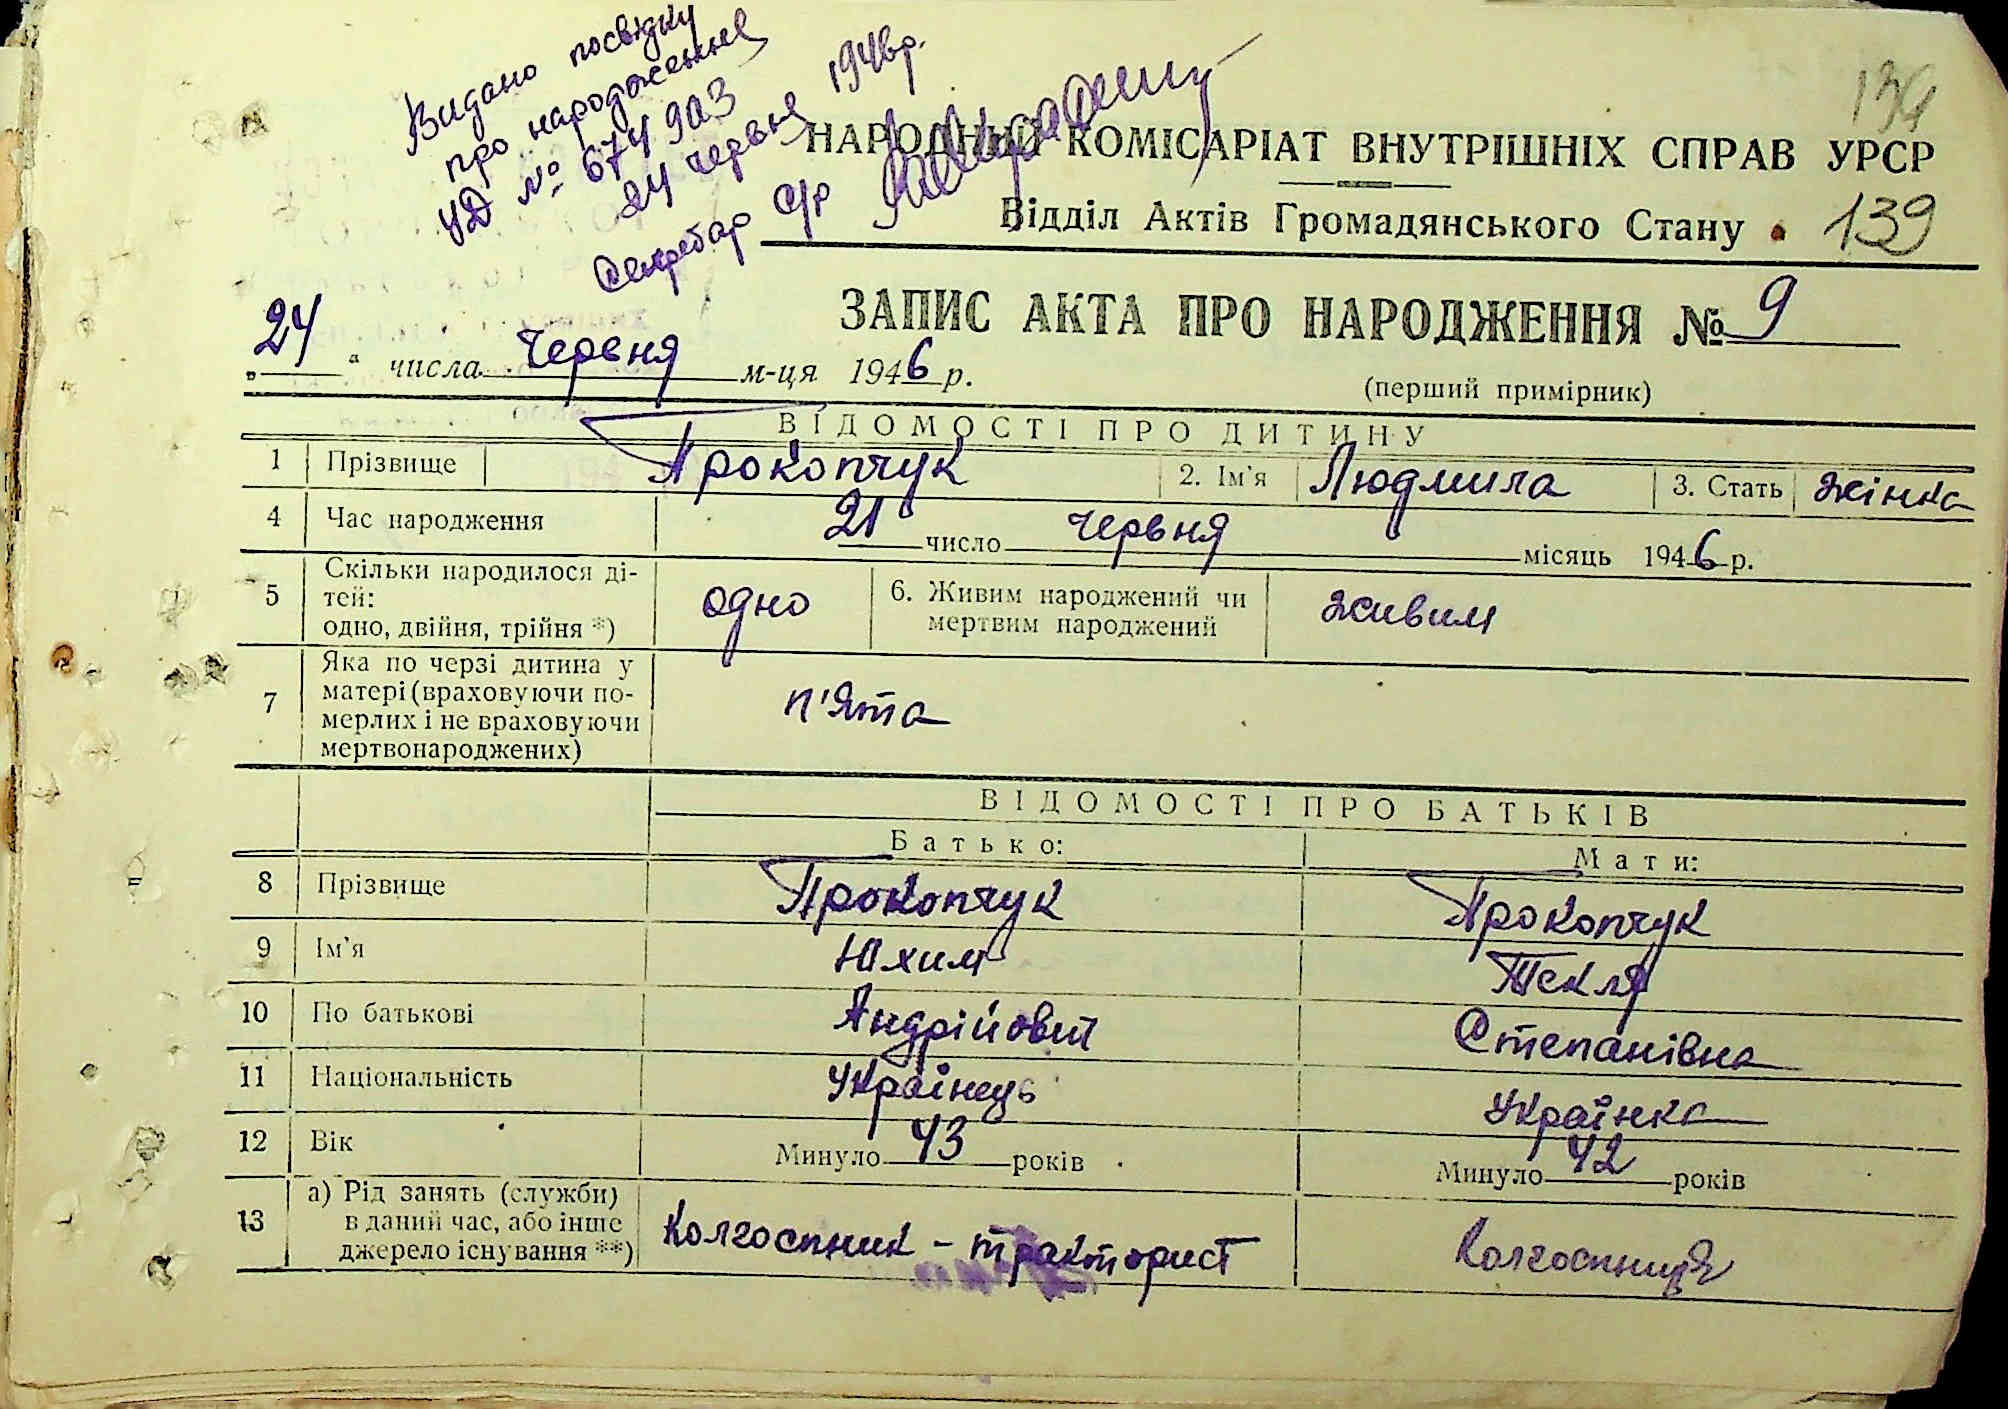 Видано посвідку
про народження
УД № 674903
24 червня 1946р.
Секретар с/р
134
НАРОДНИЙ КОМІСАРІАТ ВНУТРІШНІХ СПРАВ УРСР
Відділ Актів Громадянського Стану 139
ЗАПИС АКТА ПРО НАРОДЖЕННЯ № 9
„24“ числа Червня м-ця 1946 р.
(перший примірник)
ВІДОМОСТІ ПРО ДИТИНУ
1 Прізвище Прокопчук 2. Ім'я Людмила 3. Стать жінка
4 Час народження 21 число червня місяць 1946 р.
5 Скільки народилося ді-
тей:
одно, двійня, трійня *) одно 6. Живим народжений чи
мертвим народжений живим
7 Яка по черзі дитина у
матері (враховуючи по-
мерлих і не враховуючи
мертвонароджених) п'ята
ВІДОМОСТІ ПРО БАТЬКІВ
Батько: Мати:
8 Прізвище Прокопчук Прокопчук
9 Ім'я Юхим Текля
10 По батькові Андрійович Степанівна
11 Національність Українець Українка
12 Вік Минуло 43 років Минуло 42 років
13 а) Рід занять (служби)
в даний час, або інше
джерело існування **) Колгоспник - тракторист Колгоспниця